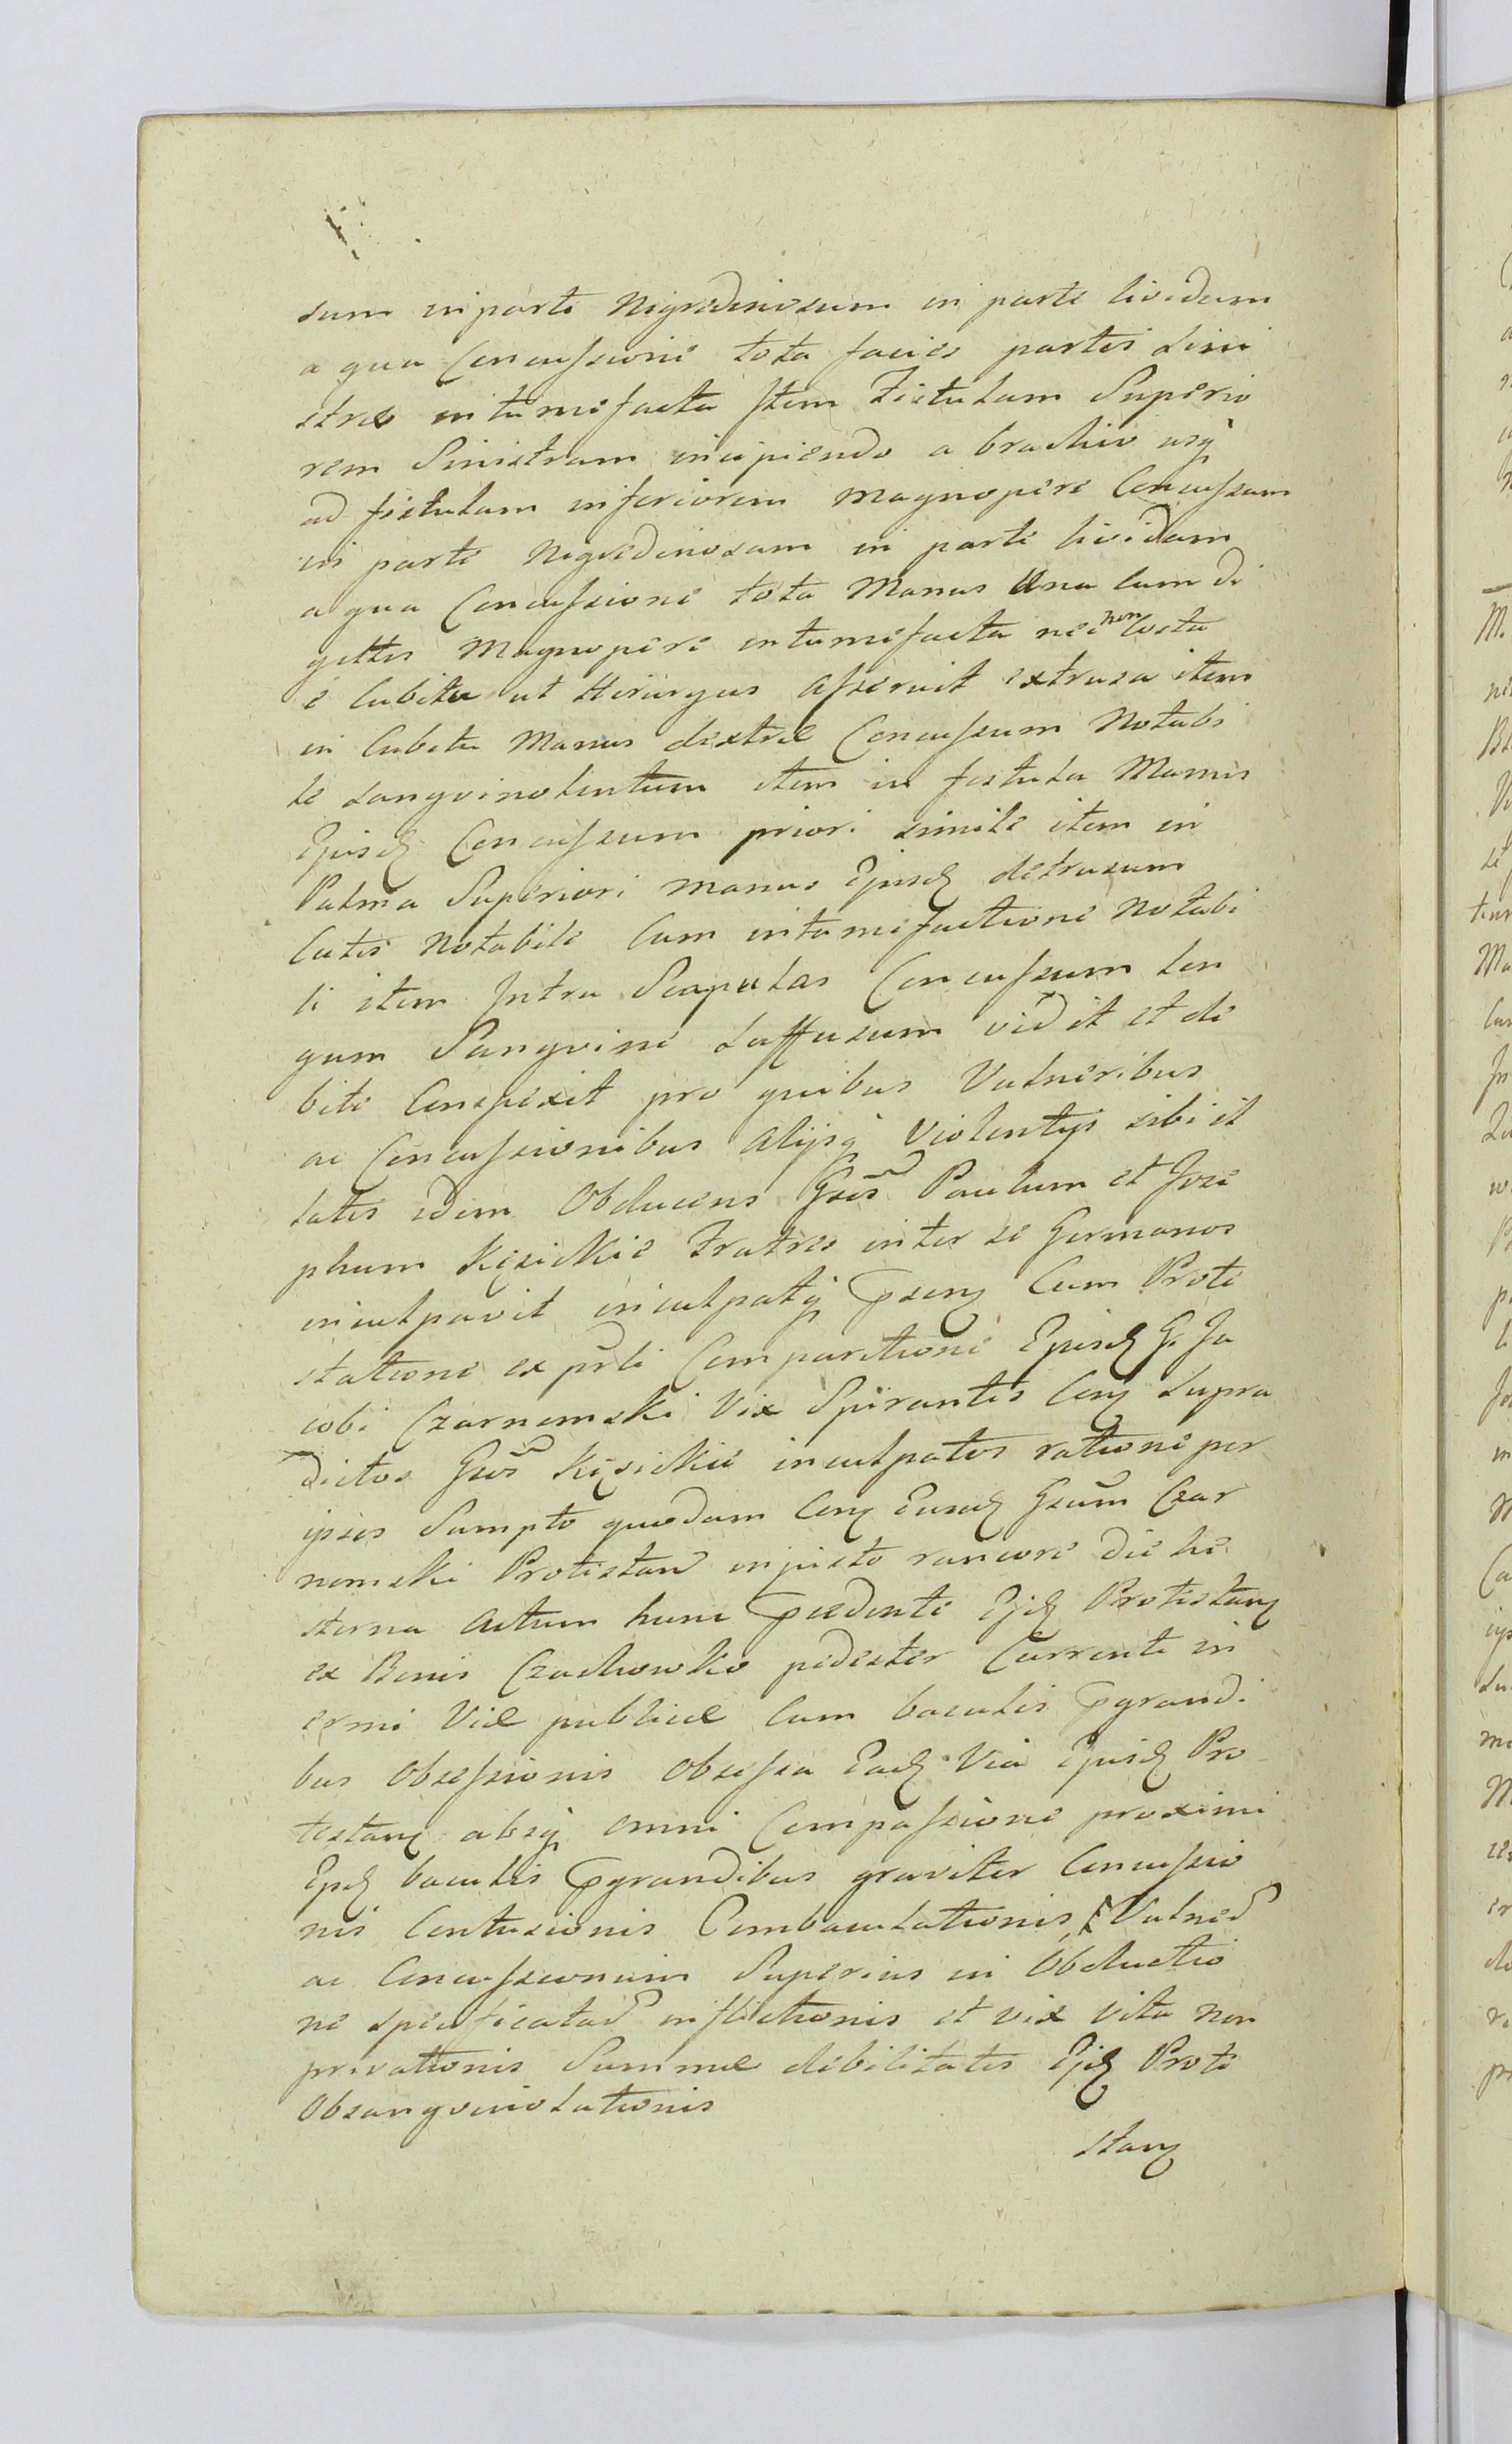 sum in parte Nigredinosum in parte lividum
a qua Concussione tota facies partis Sini
strae intumefacta Item Fistulam Superio
rem Sinistram incipiendo a brachio usq̃
ad fistulam inferiorem magnopere Concussam
in parte Nigredinosam in parte lividam
a qua Concussione tota Manus Una cum di
gittis Magnopere intumefacta nec non Costa
e Cubitu ut Hirurgus asseruit extrusa item
in Cubitu Manus dextrae Concussum Notabi
le Sangvinolentum item in fistula Manus
Ejusd Concussum priori simile item in
Palma Superiori manus Ejusd detrusum
Cutis Notabile Cum intumefactione Notabi
li item Intra Scapulas Concussum lon
gum Sangvine Suffusum vidit et de
bite Conspexit pro quibus Vulneribus
ac Concussionibus Alijsq̃ Violentijs sibi il
latis idem Obducens Gsos Paulum et Jose
phum Kęsickie Fratres inter se Germanos
inculpavit inculpatq̃ Psenq Cum Prote
statione ex pũli Comparitione Ejusd G. Ja
cobi Czarnomski Vix Spirantis Conq Supra
dictos Gsos Kęsickie inculpatos ratione per
ipsos Sumpto quodam Conq Eund Gsum Czar
nomski Protestan injusto rancore die he
sterna Actum hunc Pcedente Ejd Protestanq
ex Bonis Czachowko pedester Currente in
ermi Viae publicae Cum baculis Pgrandi
bus Obsessionis Obsessa Ead Via Ejusd Pro
testanq absq̃ omni Compassione proximi
Ejd baculis Pgrandibus graviter Concussio
nis Contusionis Combaculationis Vulned
ac Concussionum Superius in Obductio
ne specificatad inflictionis et vix vita non
privationis Summae debilitatis Ejd Prote
Obsangvinolationis
stanq